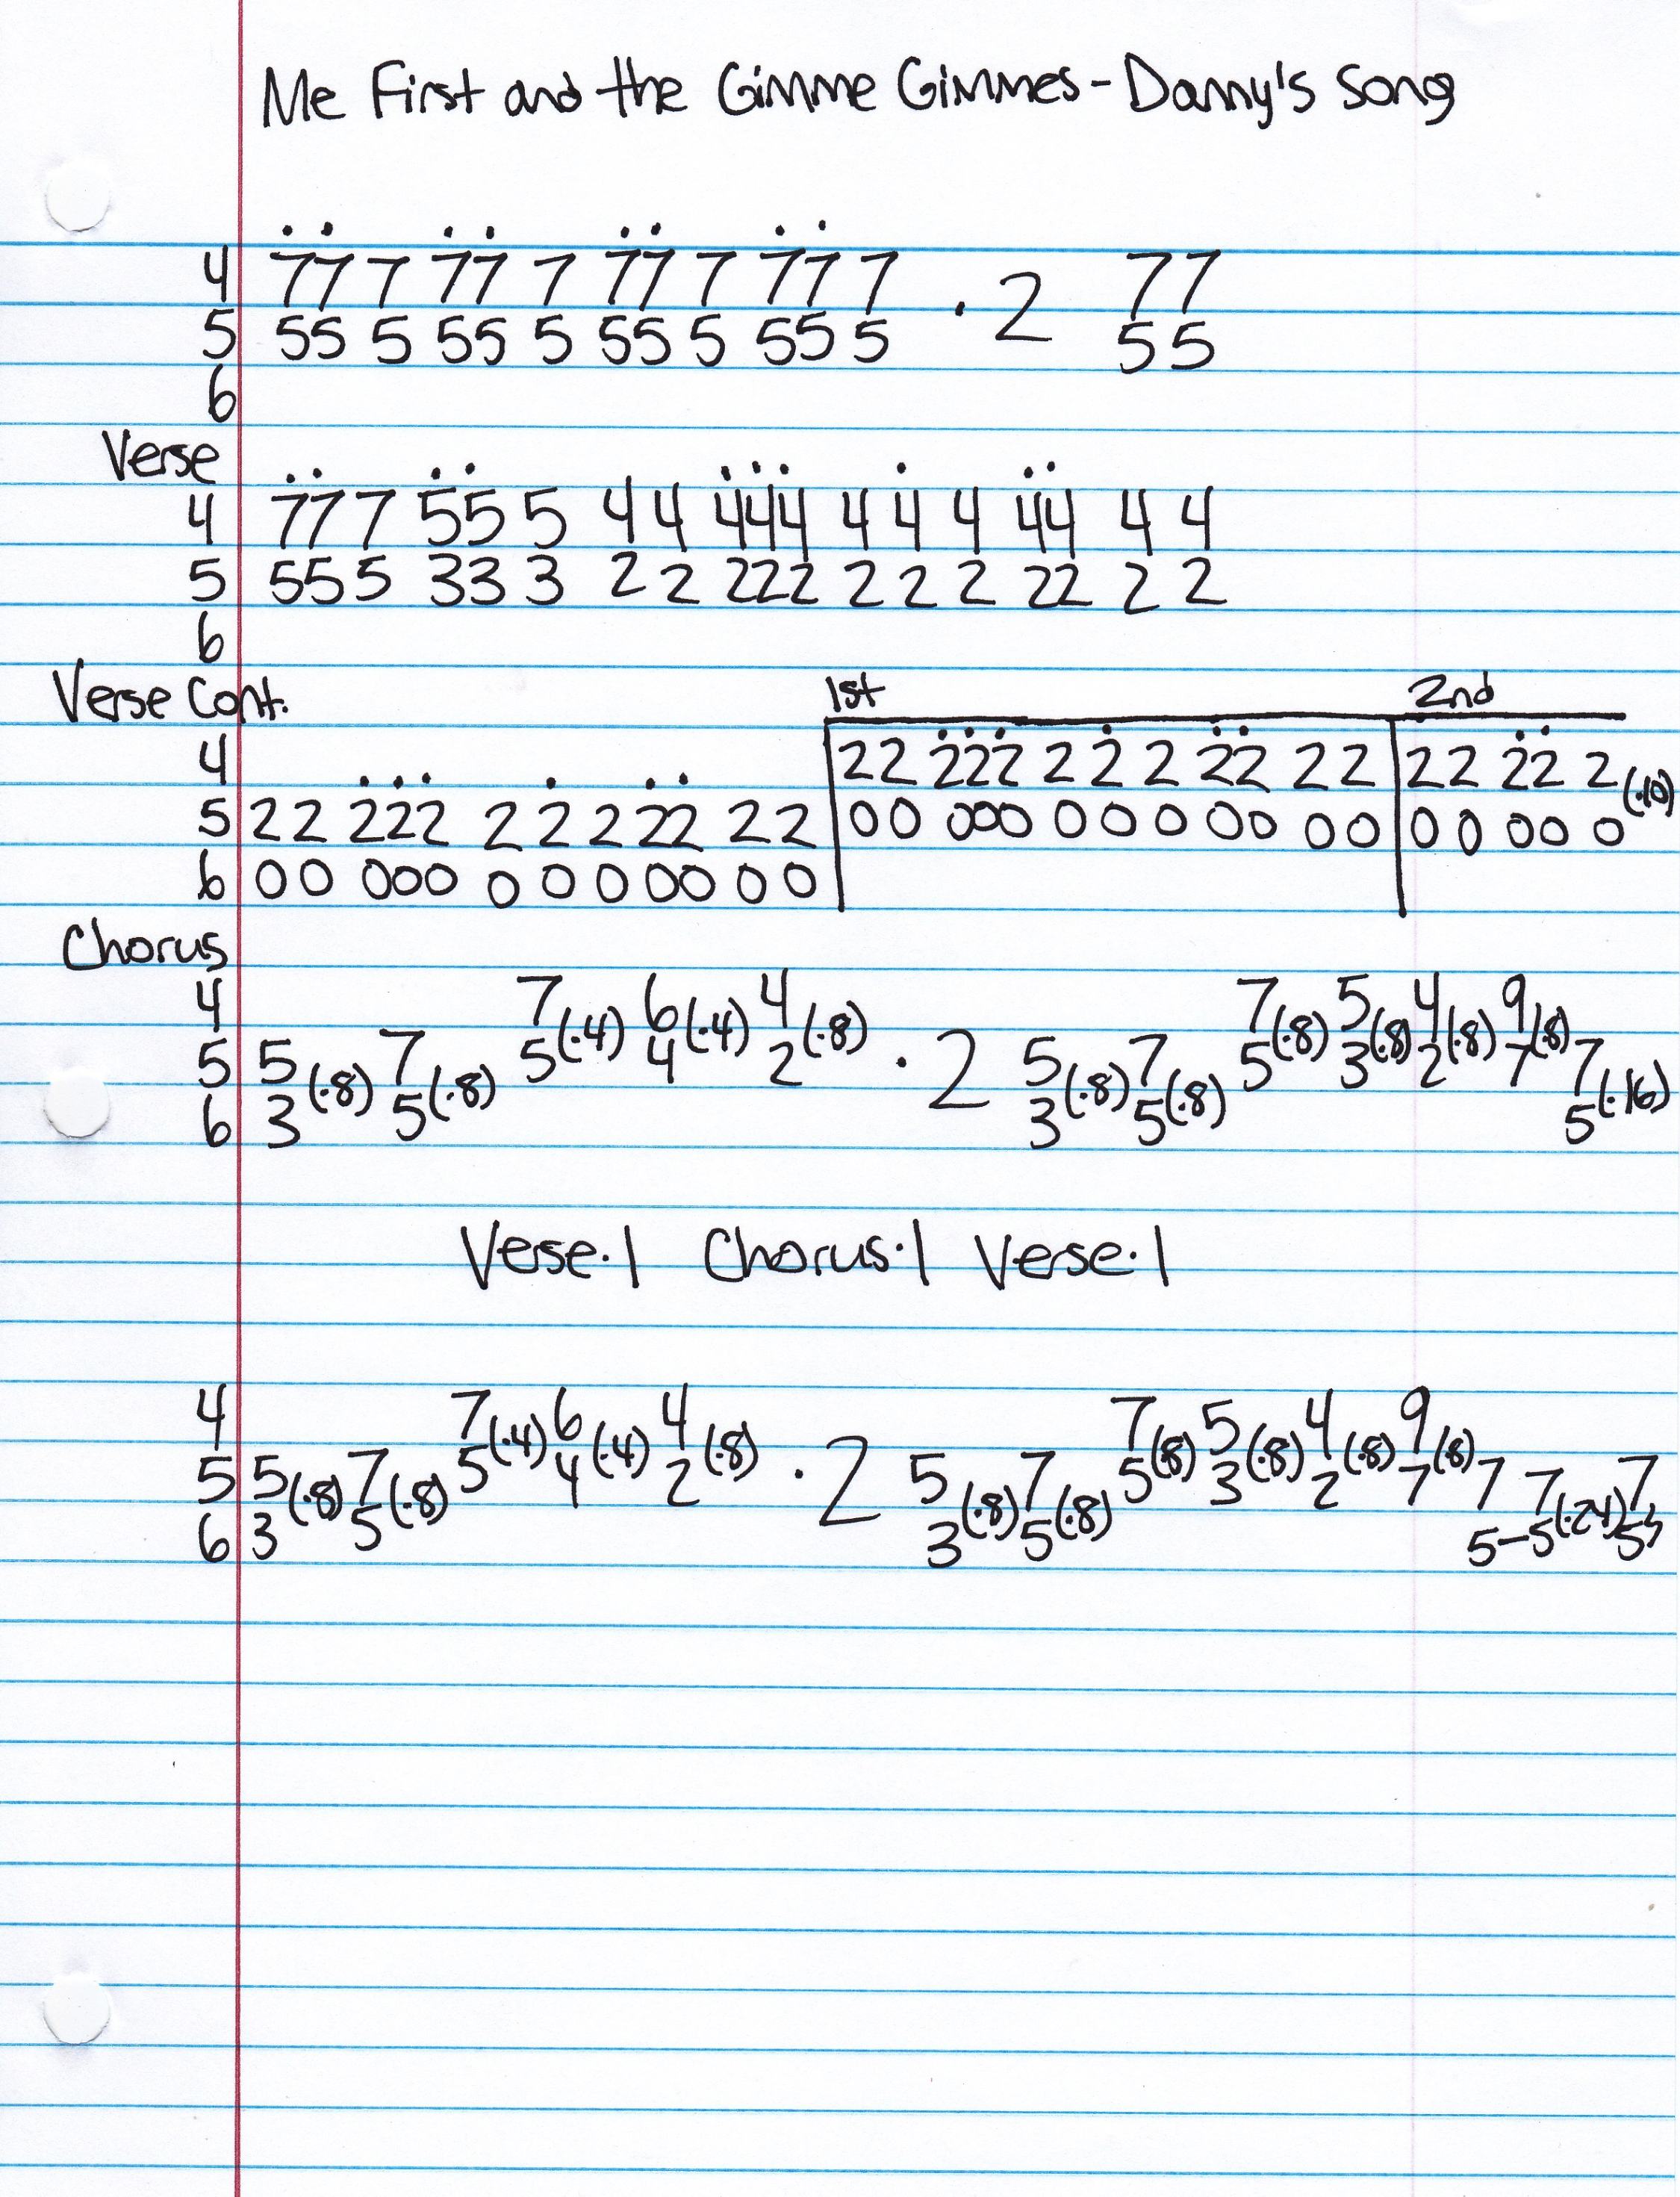 Me First and the Gimme Gimmes - Danny's Song
4 77 7 77 7 77 7 77 7 · 2 77
5 55 5 55 5 55 5 55 5 55
6
Verse
4 777 55 5 4 4 444 4 4 4 44 4 4
5 555 33 3 2 2 222 2 2 2 22 2 2
6
Verse Cont. 1st 2nd
4 22 222 2 2 2 22 22 22 22 2 (·10)
5 22 222 2 2 2 22 22 00 000 0 0 0 00 00 00 00 0
6 00 000 0 0 0 00 00
Chorus
4 7 (·4) 6 (·4) 4 (·8) 7 (·8) 5 (·8) 4 (·8) 9 (·8)
5 5 (·8) 7 (·8) 5 4 2 · 2 5 (·8) 7 (·8) 5 3 2 7 7 (·16)
6 3 5 3 5 5
Verse·1 Chorus·1 Verse·1
4 7 (·4) 6 (·4) 4 (·8) 7 (·8) 5 (·8) 4 (·8) 9 (·8)
5 5 (·8) 7 (·8) 5 4 2 · 2 5 (·8) 7 (·8) 5 3 2 7 7 7 (·24) 7
6 3 5 3 5 5-5 5